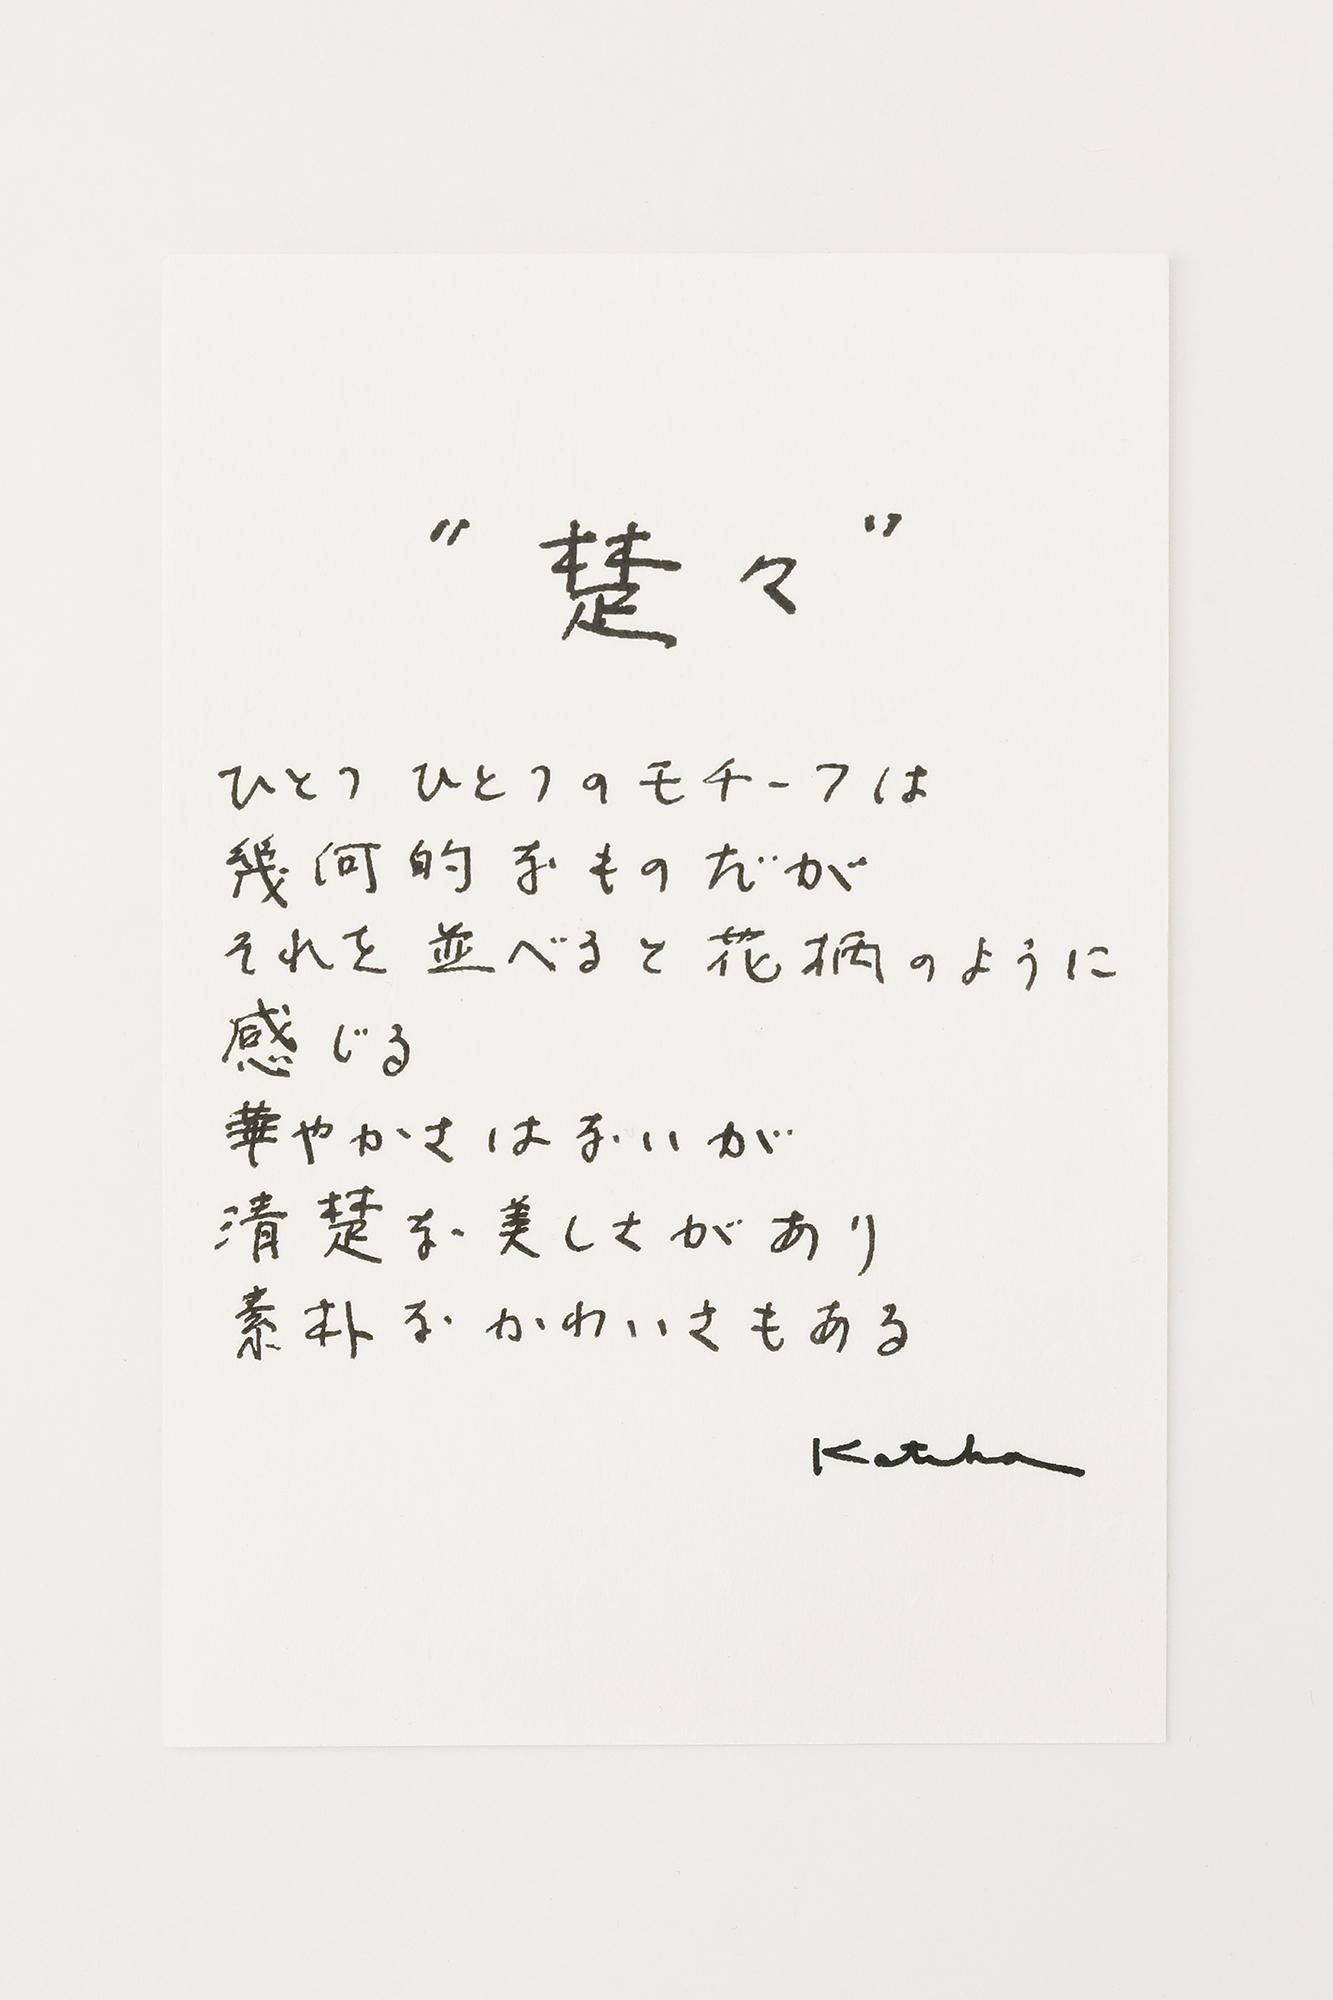 "楚々"
ひとつひとつのモチーフは
幾何的なものだが
それを並べると花柄のように
感じる
華やかさはないが
清楚な美しさがあり
素朴なかわいさもある